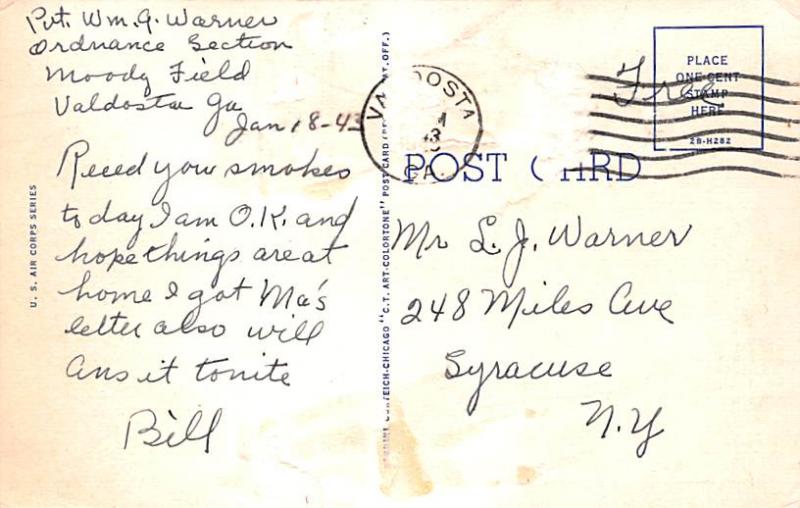 Pvt. Wm. G. Warner
Ordnance Section
Moody Field
Valdosta Ga
Jan 18-43
Recd your smokes
to day I am O.K. and
hope things are at
home I got Ma's
letter also will
ans it tonite
Bill
U. S. AIR CORPS SERIES
"C.T. ART-COLORTONE" POST CARD
PLACE
ONE CENT
STAMP
HERE
2B-H282
Free
POST CARD
Mr L. J. Warner
248 Miles Ave
Syracuse
N.Y